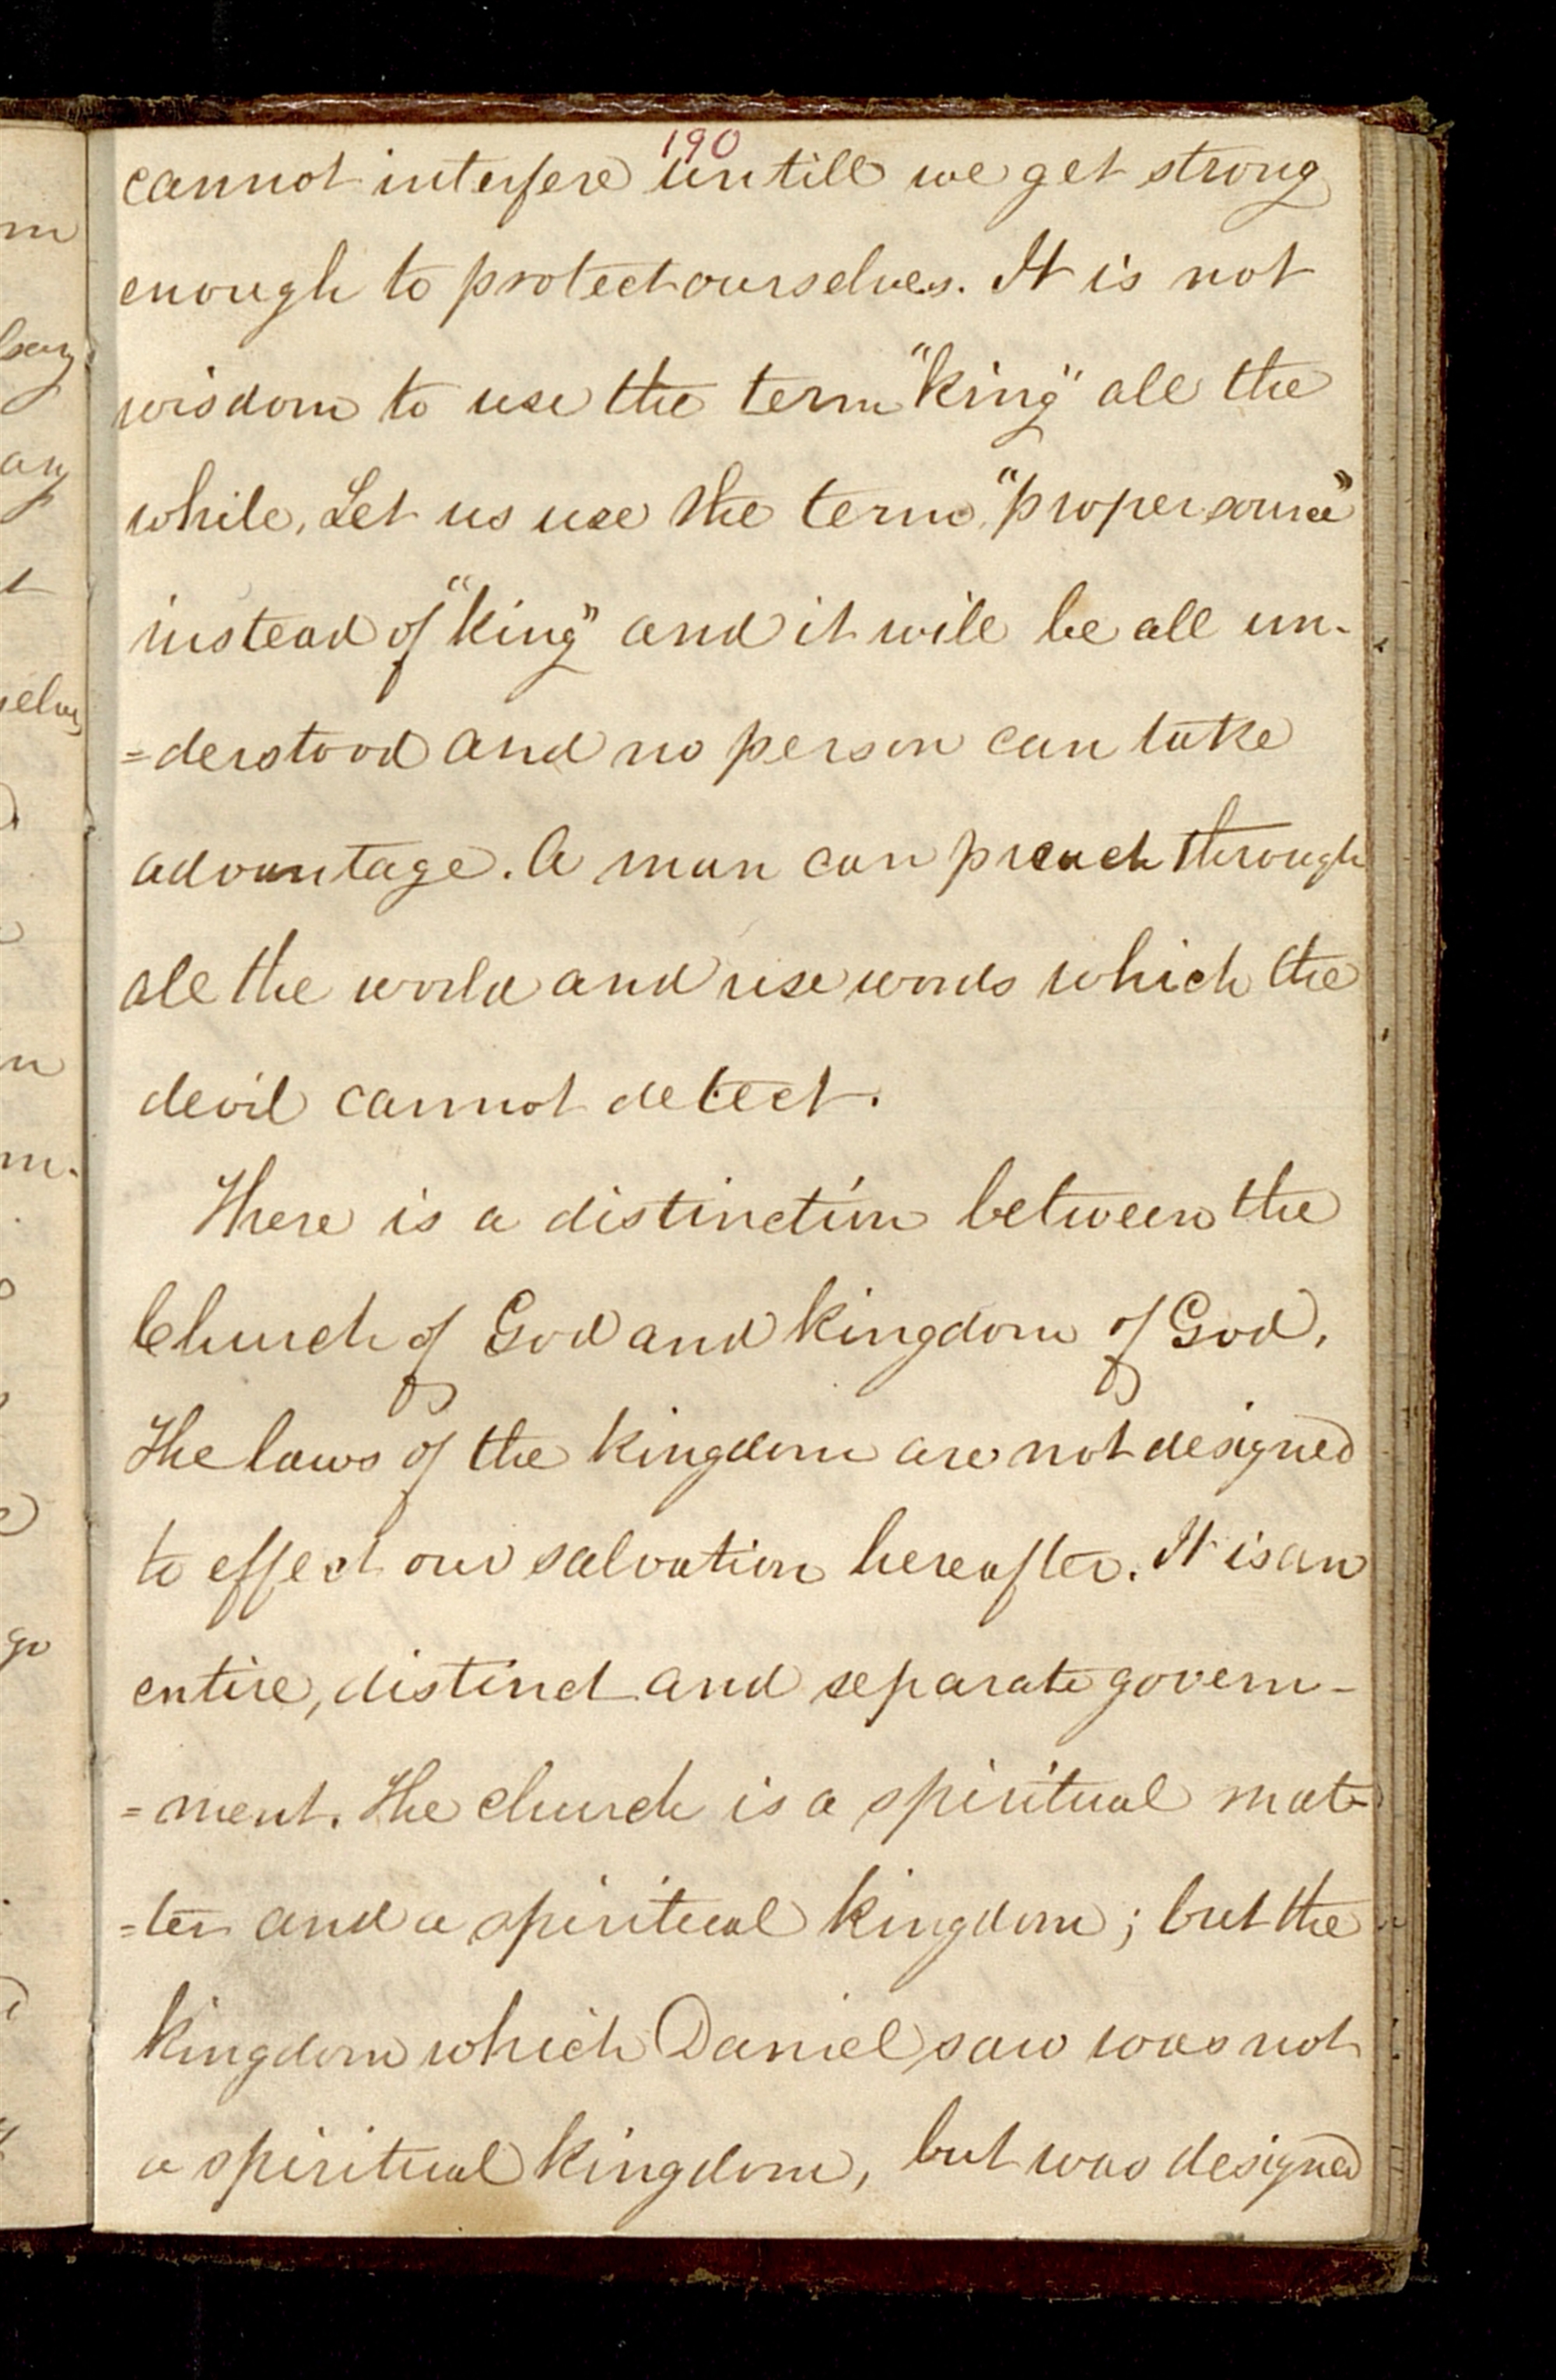 190
cannot interfere untill we get strong
enough to protect ourselves. It is not
wisdom to use the term "king" all the
while. Let us use the term "proper source"
instead of "king" and it will be all un-
=derstood and no person can take
advantage. A man can preach through
all the world and use words which the
devil cannot detect.
There is a distinction between the
Church of God and kingdom of God.
The laws of the kingdom are not designed
to effect our salvation hereafter. It is an
entire, distinct and separate govern-
=ment. The church is a spiritual mat-
=ter and a spiritual kingdom; but the
kingdom which Daniel saw was not
a spiritual kingdom, but was designed